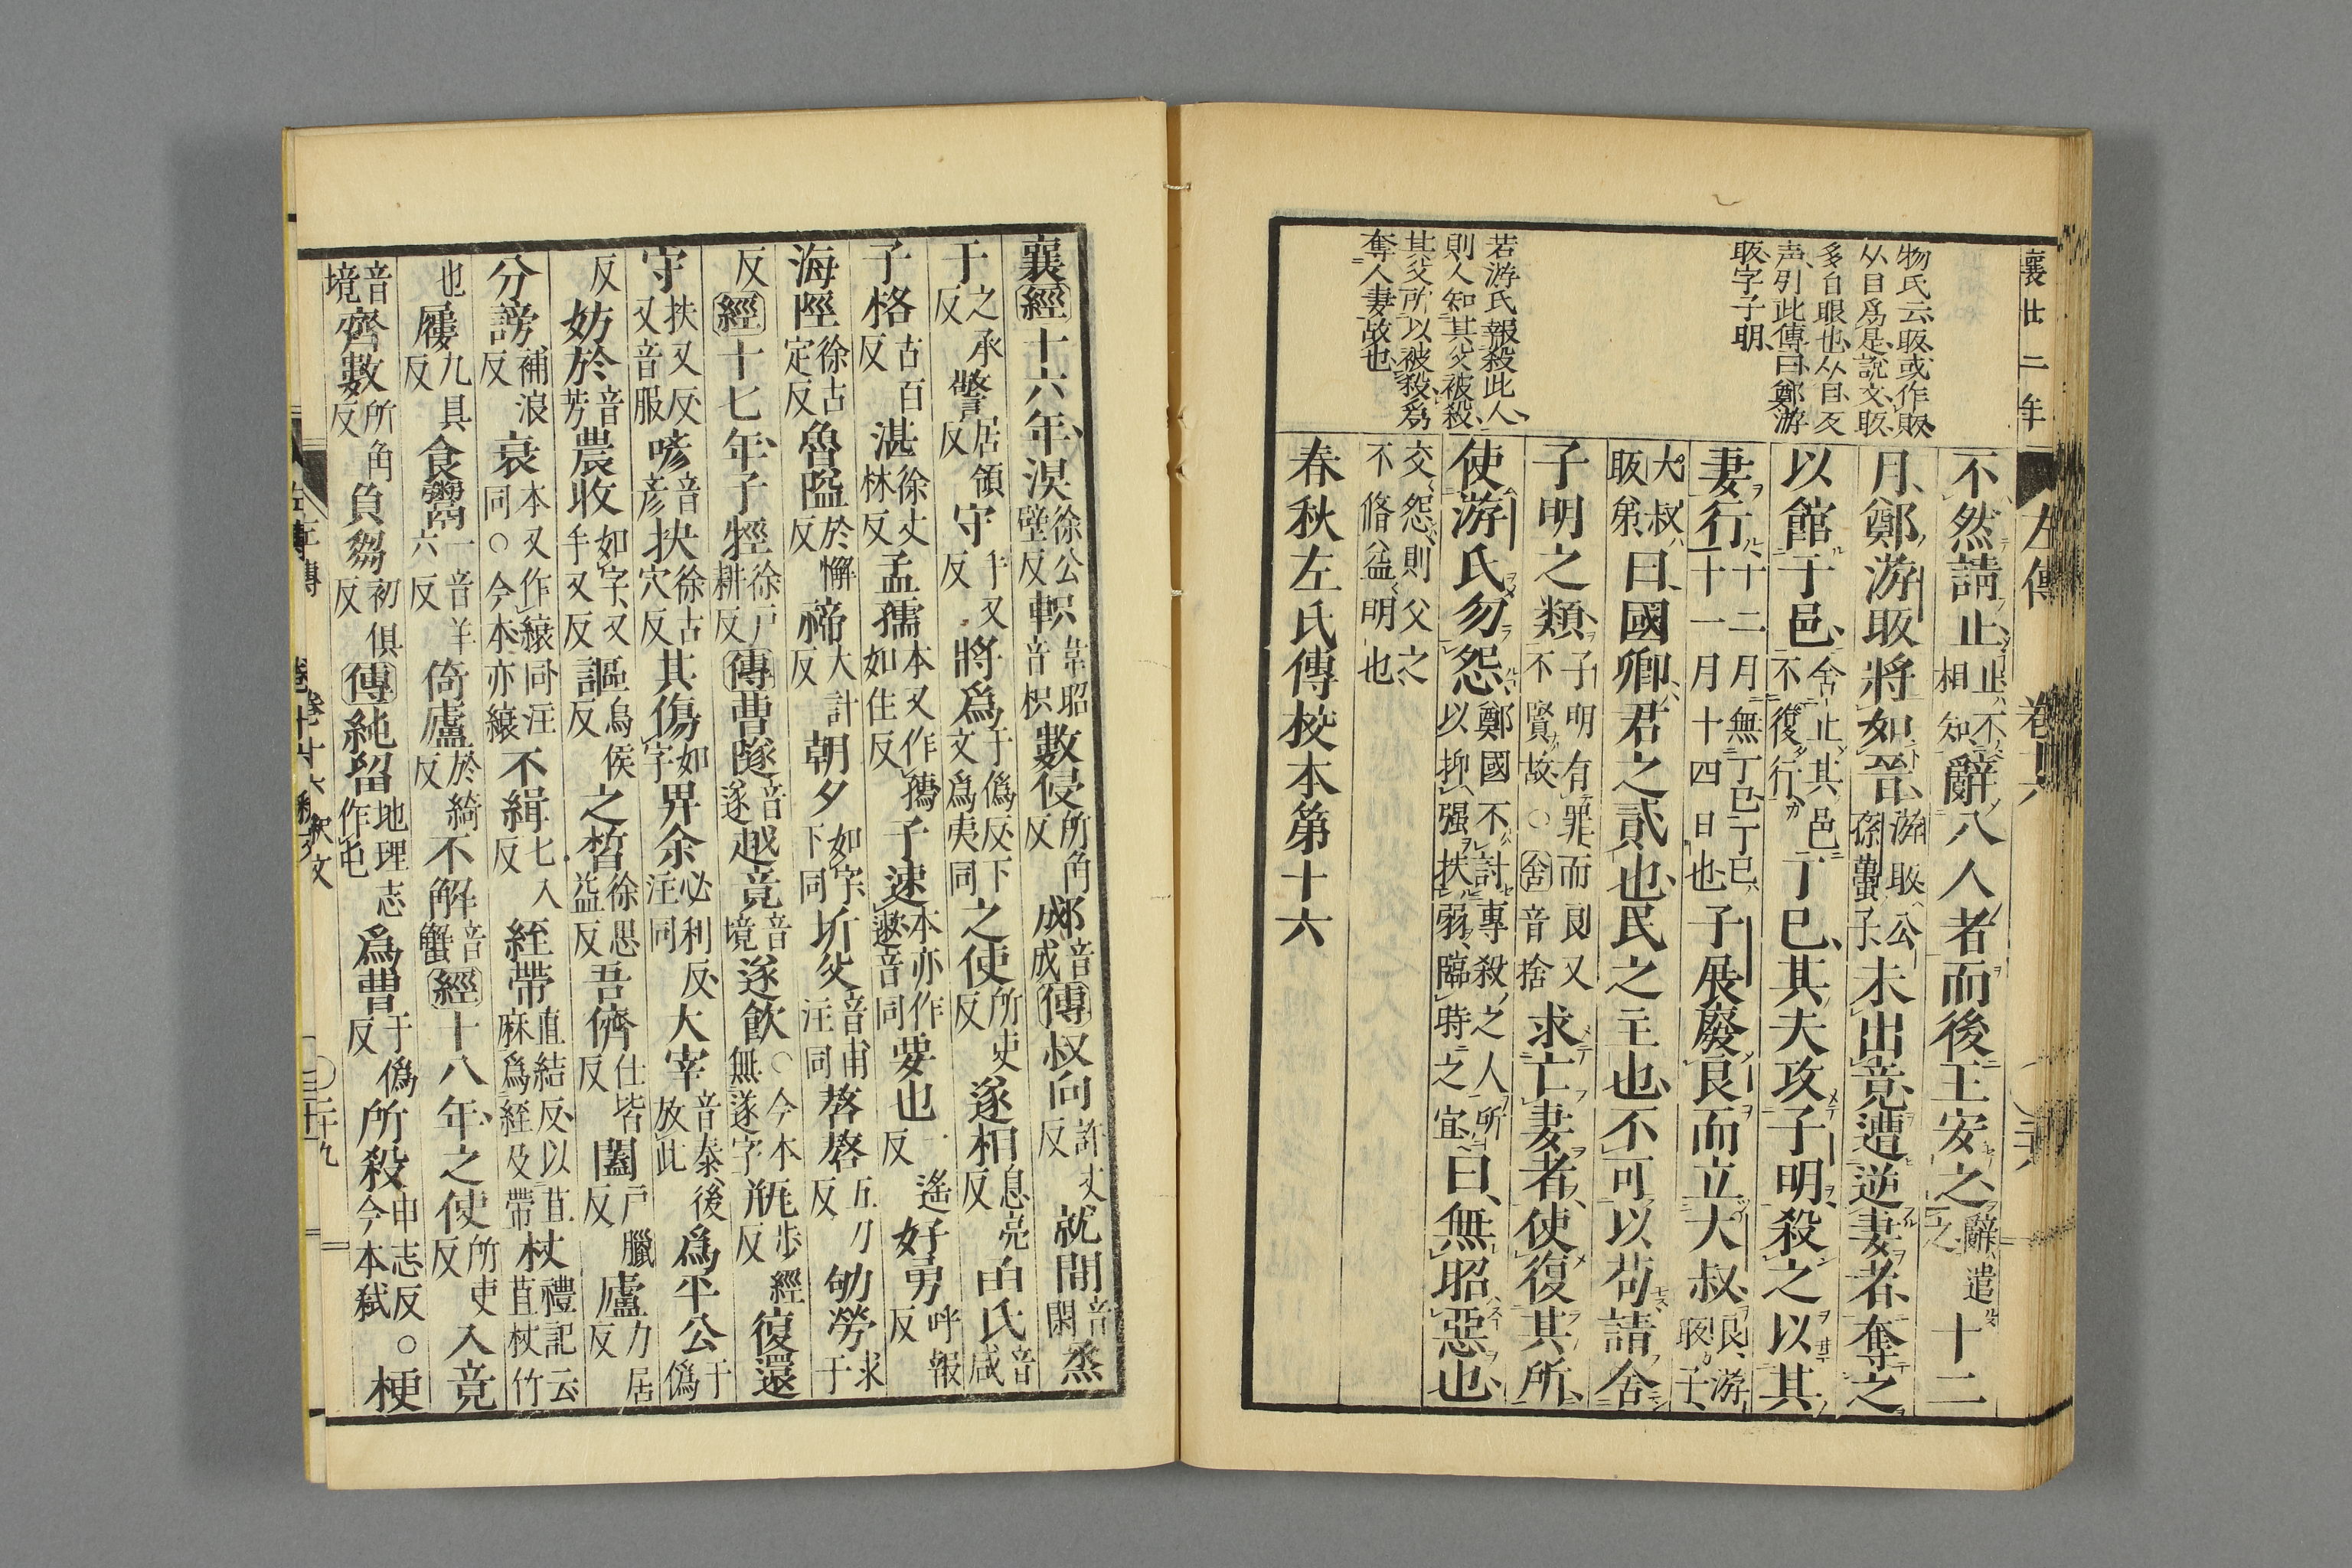 襄廿二年
左傳
卷十六
物氏云、䀗、或作䀛、
从目爲是、説文、䀗、
多白眼也、从目反
声、引此傳曰、鄭游
䀗、字子明、
若游氏報殺此人、
則人知其父被殺、
其父所以被殺、爲
奪人妻故也、
不然請止、止、不相知、辭八人者、而後王安之、辭、遣之、十二
月、鄭游䀗將如晉、游䀗、公孫蠆子、未出竟、遭逆妻者、奪之
以館于邑、舍止其邑、不復行、丁巳、其夫攻子明、殺之、以其
妻行、十二月無丁巳、丁巳、十一月十四日也、子展廢良而立大叔、良、游䀗子、
大叔、䀗弟、曰、國卿、君之貳也、民之主也、不可以苟、請舍
子明之類、子明有罪、而良又不賢故、○舍音捨求亡妻者、使復其所、
使游氏勿怨、鄭國不討專殺之人、所以抑强扶弱、臨時之宜、曰、無昭惡也、
交怨、則父之不脩益明也
春秋左氏傳校本第十六
襄經十六年、湨徐公壁反軹韋昭音枳數侵所角反郕音成傳叔向許丈反就閒音閑烝
于之承反警居領反守手又反將爲于僞反下文爲夷同之使所吏反遂相息亮反由氏音咸
子格古百反湛徐丈林反孟孺本又作獳如住反子速本亦作遬音同要也一遙反好勇呼報反
海陘徐古定反魯隘於懈反禘大計反朝夕如字下同圻父音甫注同嗸嗸五刀反劬勞求于
反經十七年、子牼徐戸耕反傳曹隧音遂越竟音境遂飲○今本無遂字甁步經反復還
守扶又反又音服喭音彦抉徐古穴反其傷如字畀余必利反注同大宰音泰、後放此爲平公于僞
反妨於音芳農收如字、又手又反謳烏侯反之晳徐思益反吾儕仕皆反闔戸臘反廬力居反
分謗補浪反衰本又作縗同○今本亦縗同汪不緝七入反絰帶直結反、以麻爲絰及帶苴杖禮記云苴杖竹
也屨九具反食鬻一音羊六反倚廬於綺反不解音蟹經十八年、之使所吏反入竟
音境齊數所角反負芻初俱反傳純留地理志作屯爲曹于僞反所殺申志反○今本弑梗